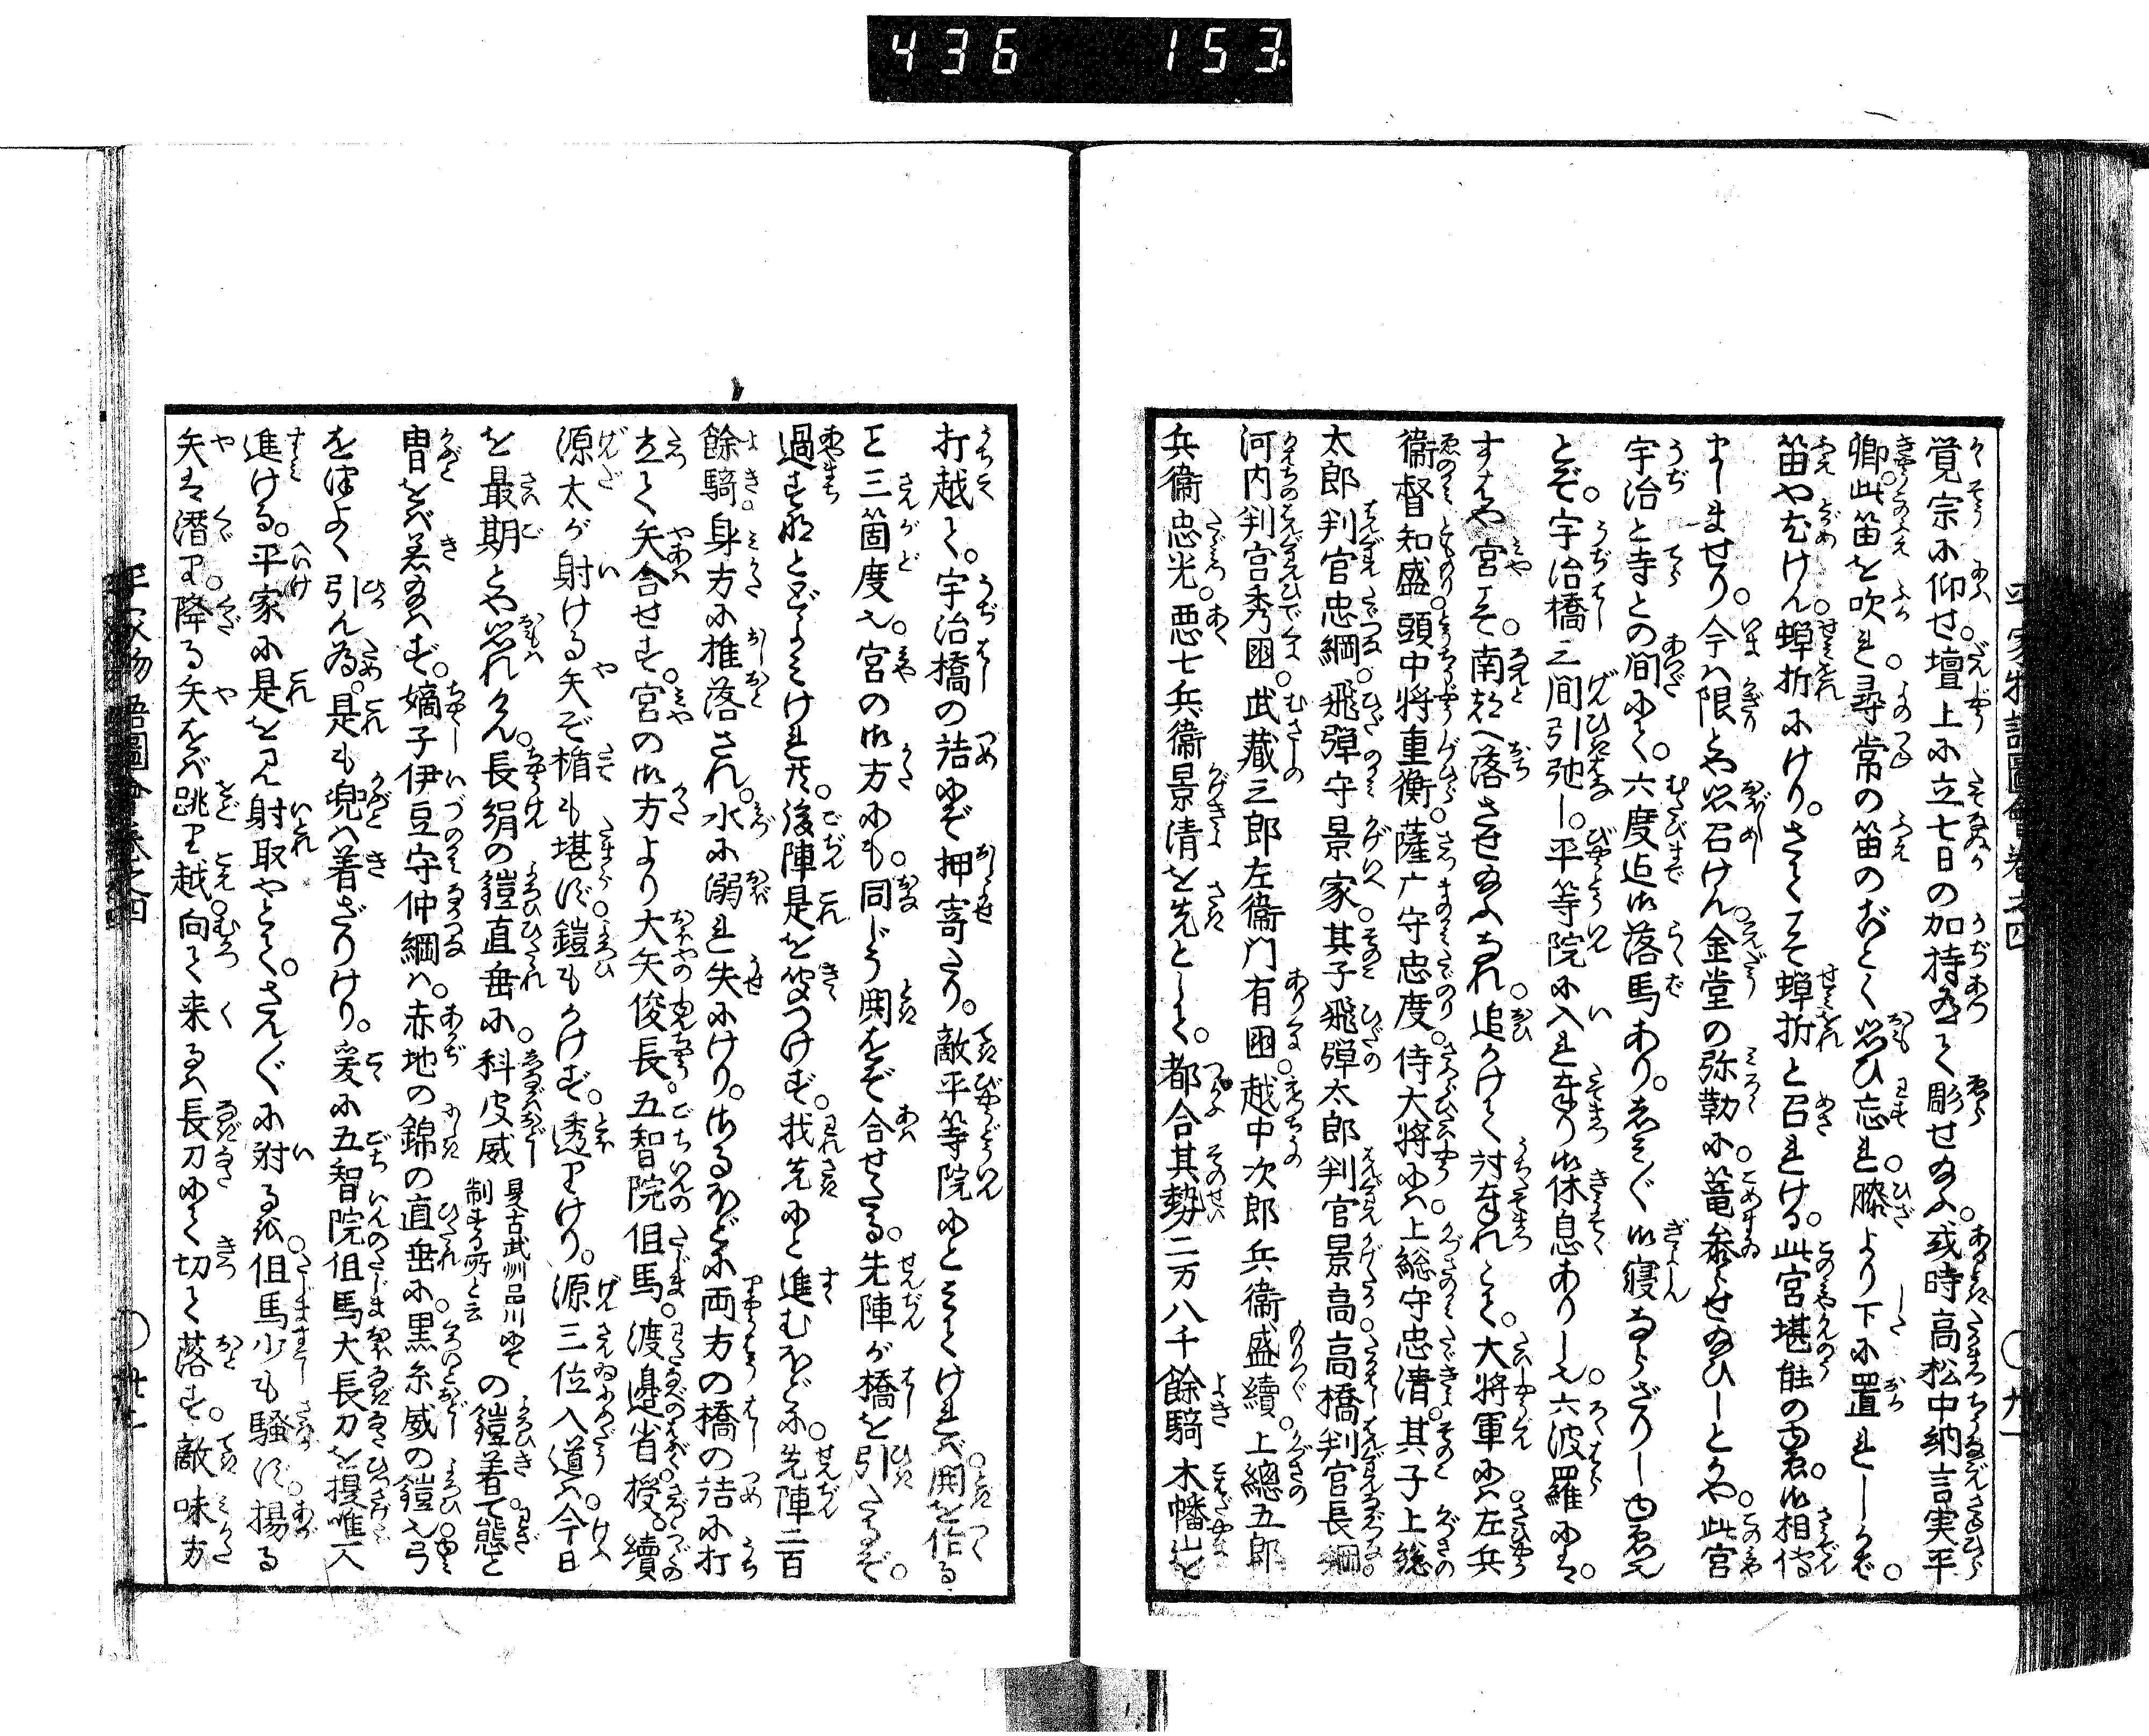 436 153.
平家物語圖會巻之四 〇九一
覚宗に仰せ。壇上に立七日の加持ありて彫せ給ふ。或時高松中納言実平
卿。此笛を吹れ。尋常の笛のごとく思ひ忘れ。膝より下に置れしかば。
笛やとがめけん。蝉折にけり。さてこそ蝉折と召れける。此宮堪能のゆゑ。御相伝
ましませり。今は限とや思召けん。金堂の弥勒に。篭参らせ給ひしとかや。此宮
宇治と寺との間にて。六度迄御落馬あり。あらく御寝ならざりしゆゑ也
とぞ。宇治橋三間引弛し。平等院に入れ奉り御休息ありしに。六波羅には。
すはや宮こそ。南都へ落させ給ふなれ。追かけて討奉れとて。大将軍には。左兵
衞督知盛。頭中将重衡。薩广守忠度。侍大将には。上総守忠清。其子上総
太郎判官忠綱。飛弾守景家。其子飛弾太郎判官景高。高橋判官長綱。
河内判官秀囶。武蔵三郎左衞門有囶。越中次郎兵衞盛續。上總五郎
兵衞忠光。悪七兵衞景清を先として。都合其勢二万八千餘騎木幡山を
打越て。宇治橋の詰にぞ押寄たり。敵平等院にとみてければ。閧を作る
こと三箇度也。宮の御方にも。同じう閧をぞ合せたる。先陣が橋を引たるぞ。
過すなとどよみけれ共。後陣是を聞つけず。我先にと進むほどに。先陣二百
餘騎。身方に推落され。水に溺れ失にけり。さるほどに両方の橋の詰に打
立て矢合せす。宮の御方より大矢俊長。五智院但馬。渡邉省授。續
源太が射ける矢ぞ楯も堪ず。鎧もかけず。透りけり。源三位入道は今日
を最期とや思れけん。長絹の鎧直垂に。科皮威 是古武州品川にて制する所と云 の鎧着て態と
冑をば着給はず。嫡子伊豆守仲綱は。赤地の錦の直垂に。黒糸威の鎧也。弓
をつよく引ん為。是も兜は着ざりけり。爰に五智院但馬大長刀を提唯一人
進ける。平家に是をみて射取やとて。さん〴〵に射る。但馬少も騒ず。揚る
矢は潜り。降る矢をば跳り越。向て来るは長刀にて切て落す。敵味方
平家物語圖會巻之四 〇